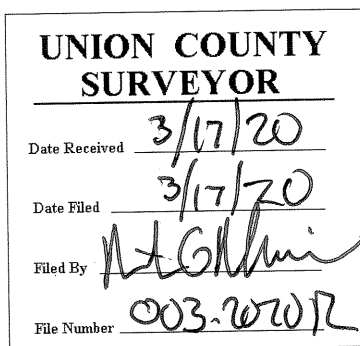 UNION COUNTY
SURVEYOR
Date Received 3/17/20
Date Filed 3/17/20
Filed By
File Number 003-2020R